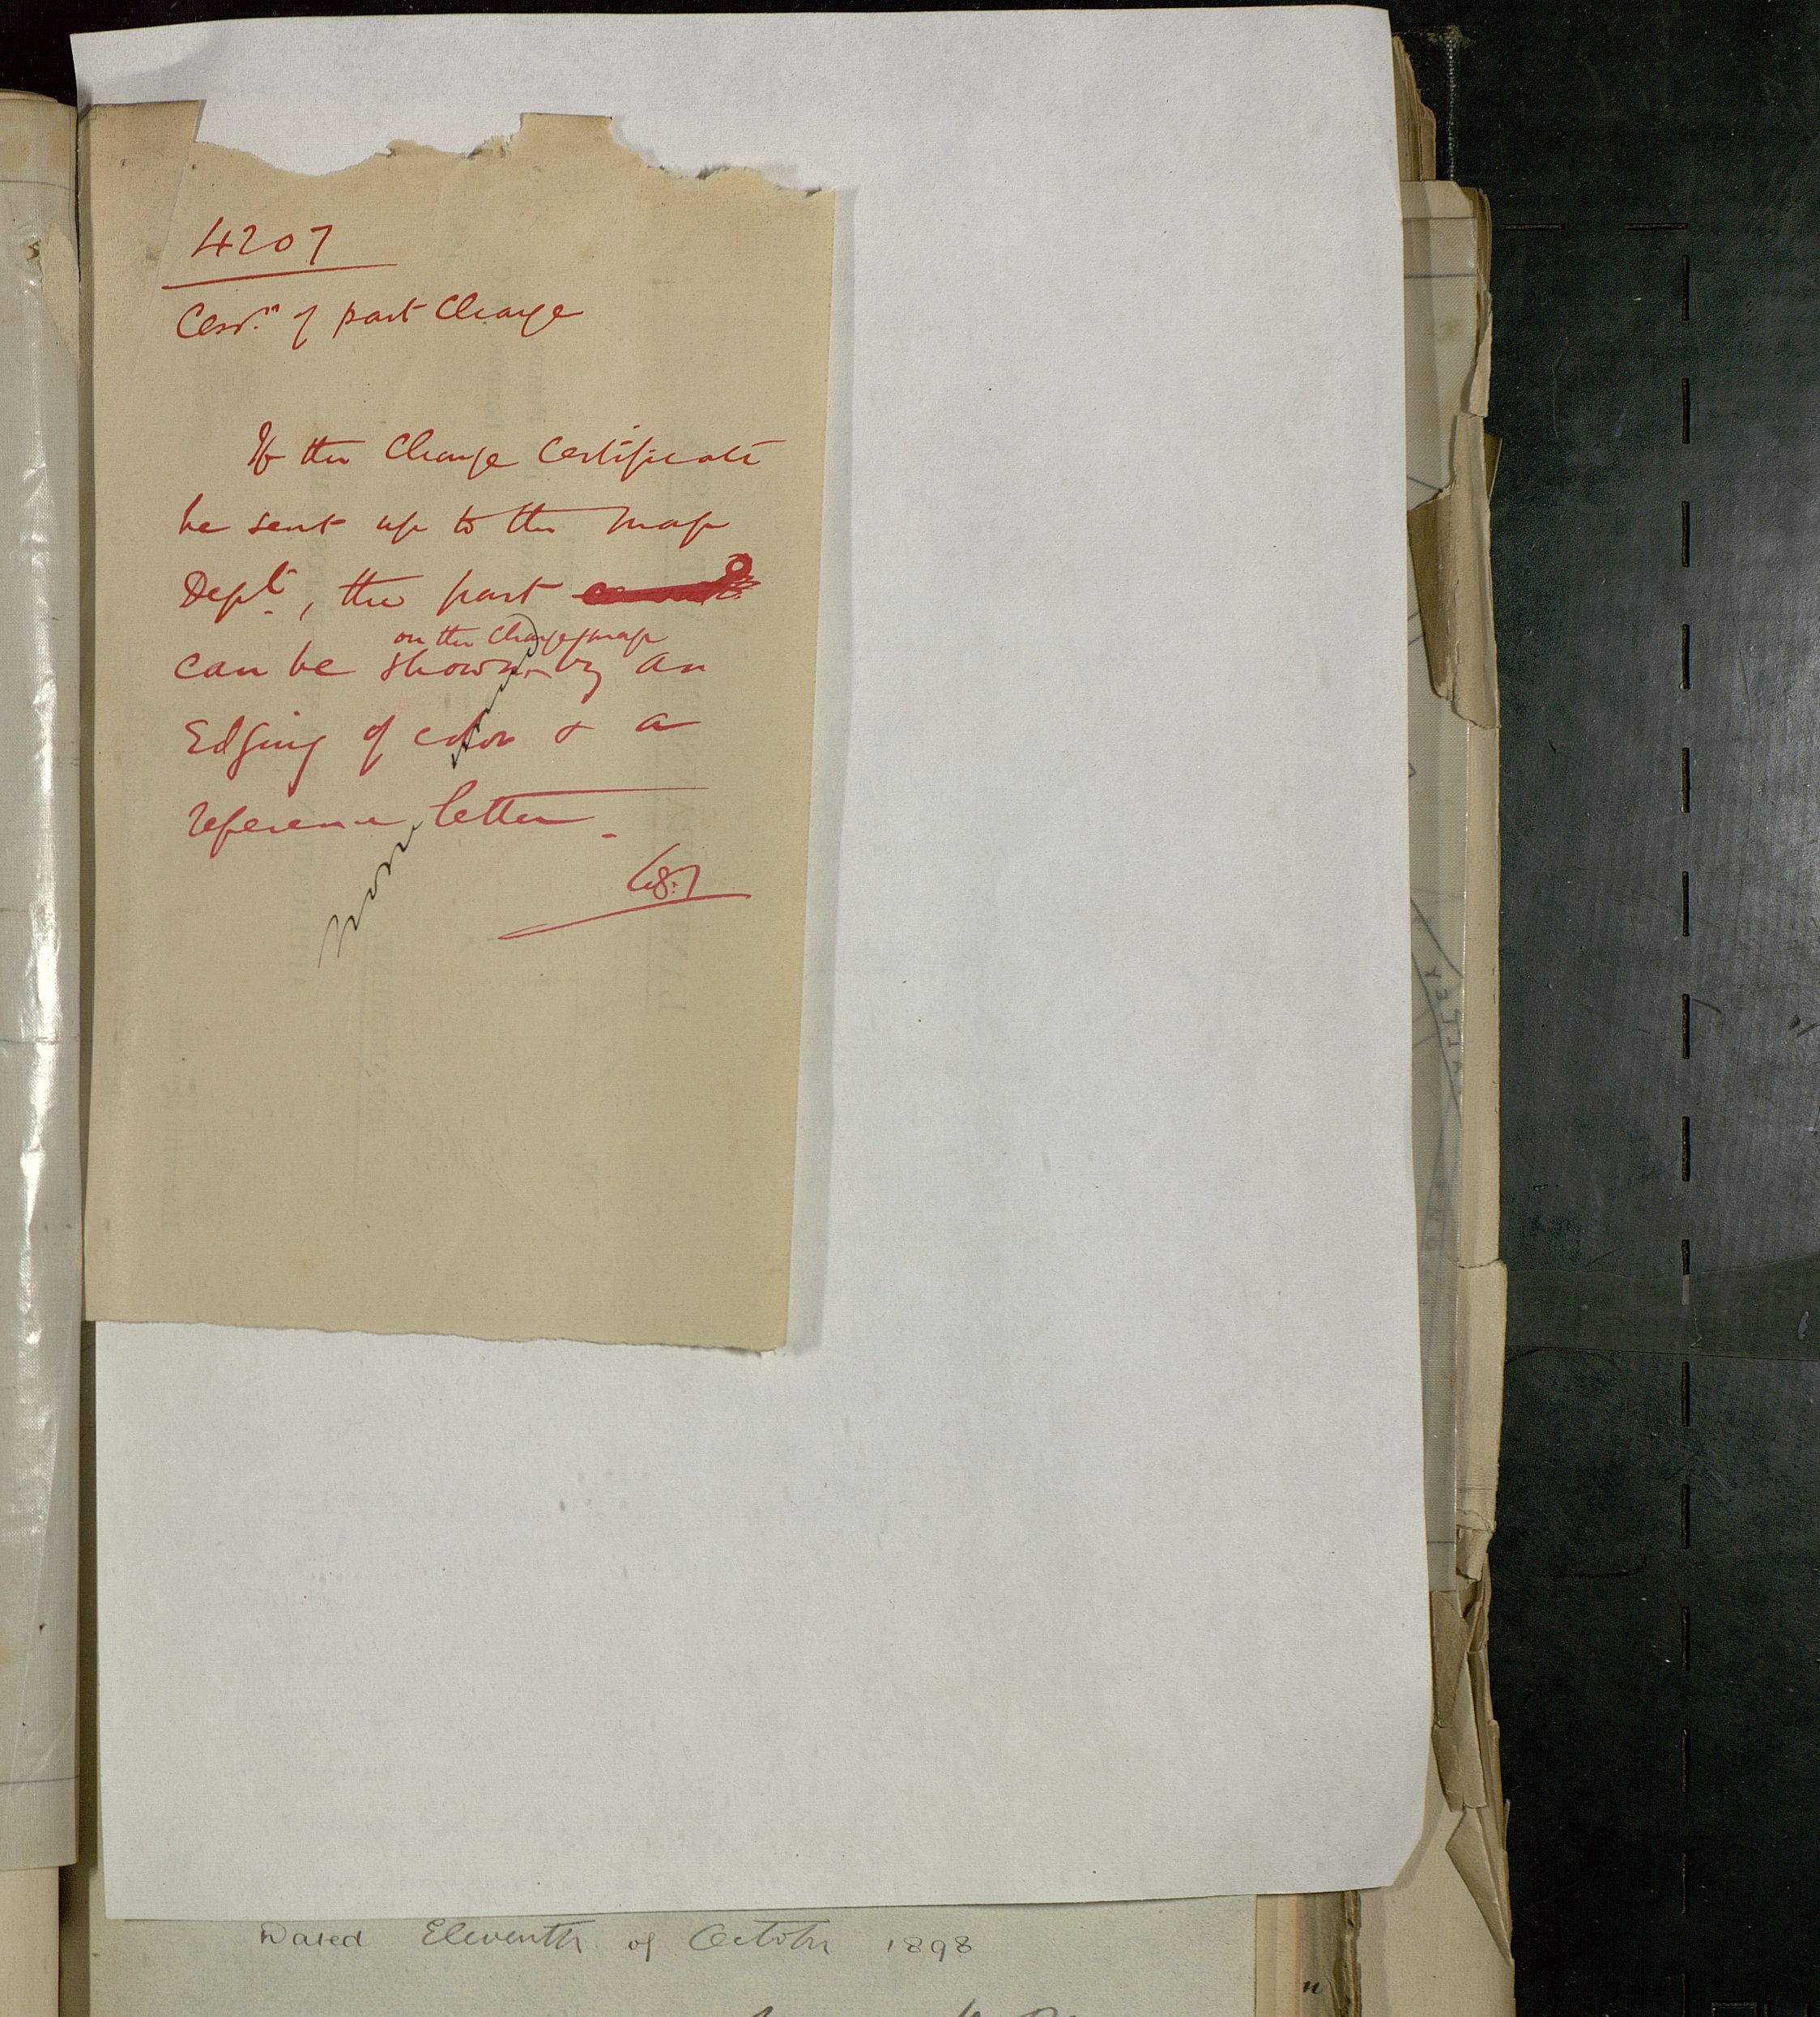 4207
Cessn. of part Charge
If the Charge Certificate
be sent up to the Map
Dept., the part
on the Charge map
can be shown by an
Edging of color & a
reference letter.
Dated Eleventh of October 1898